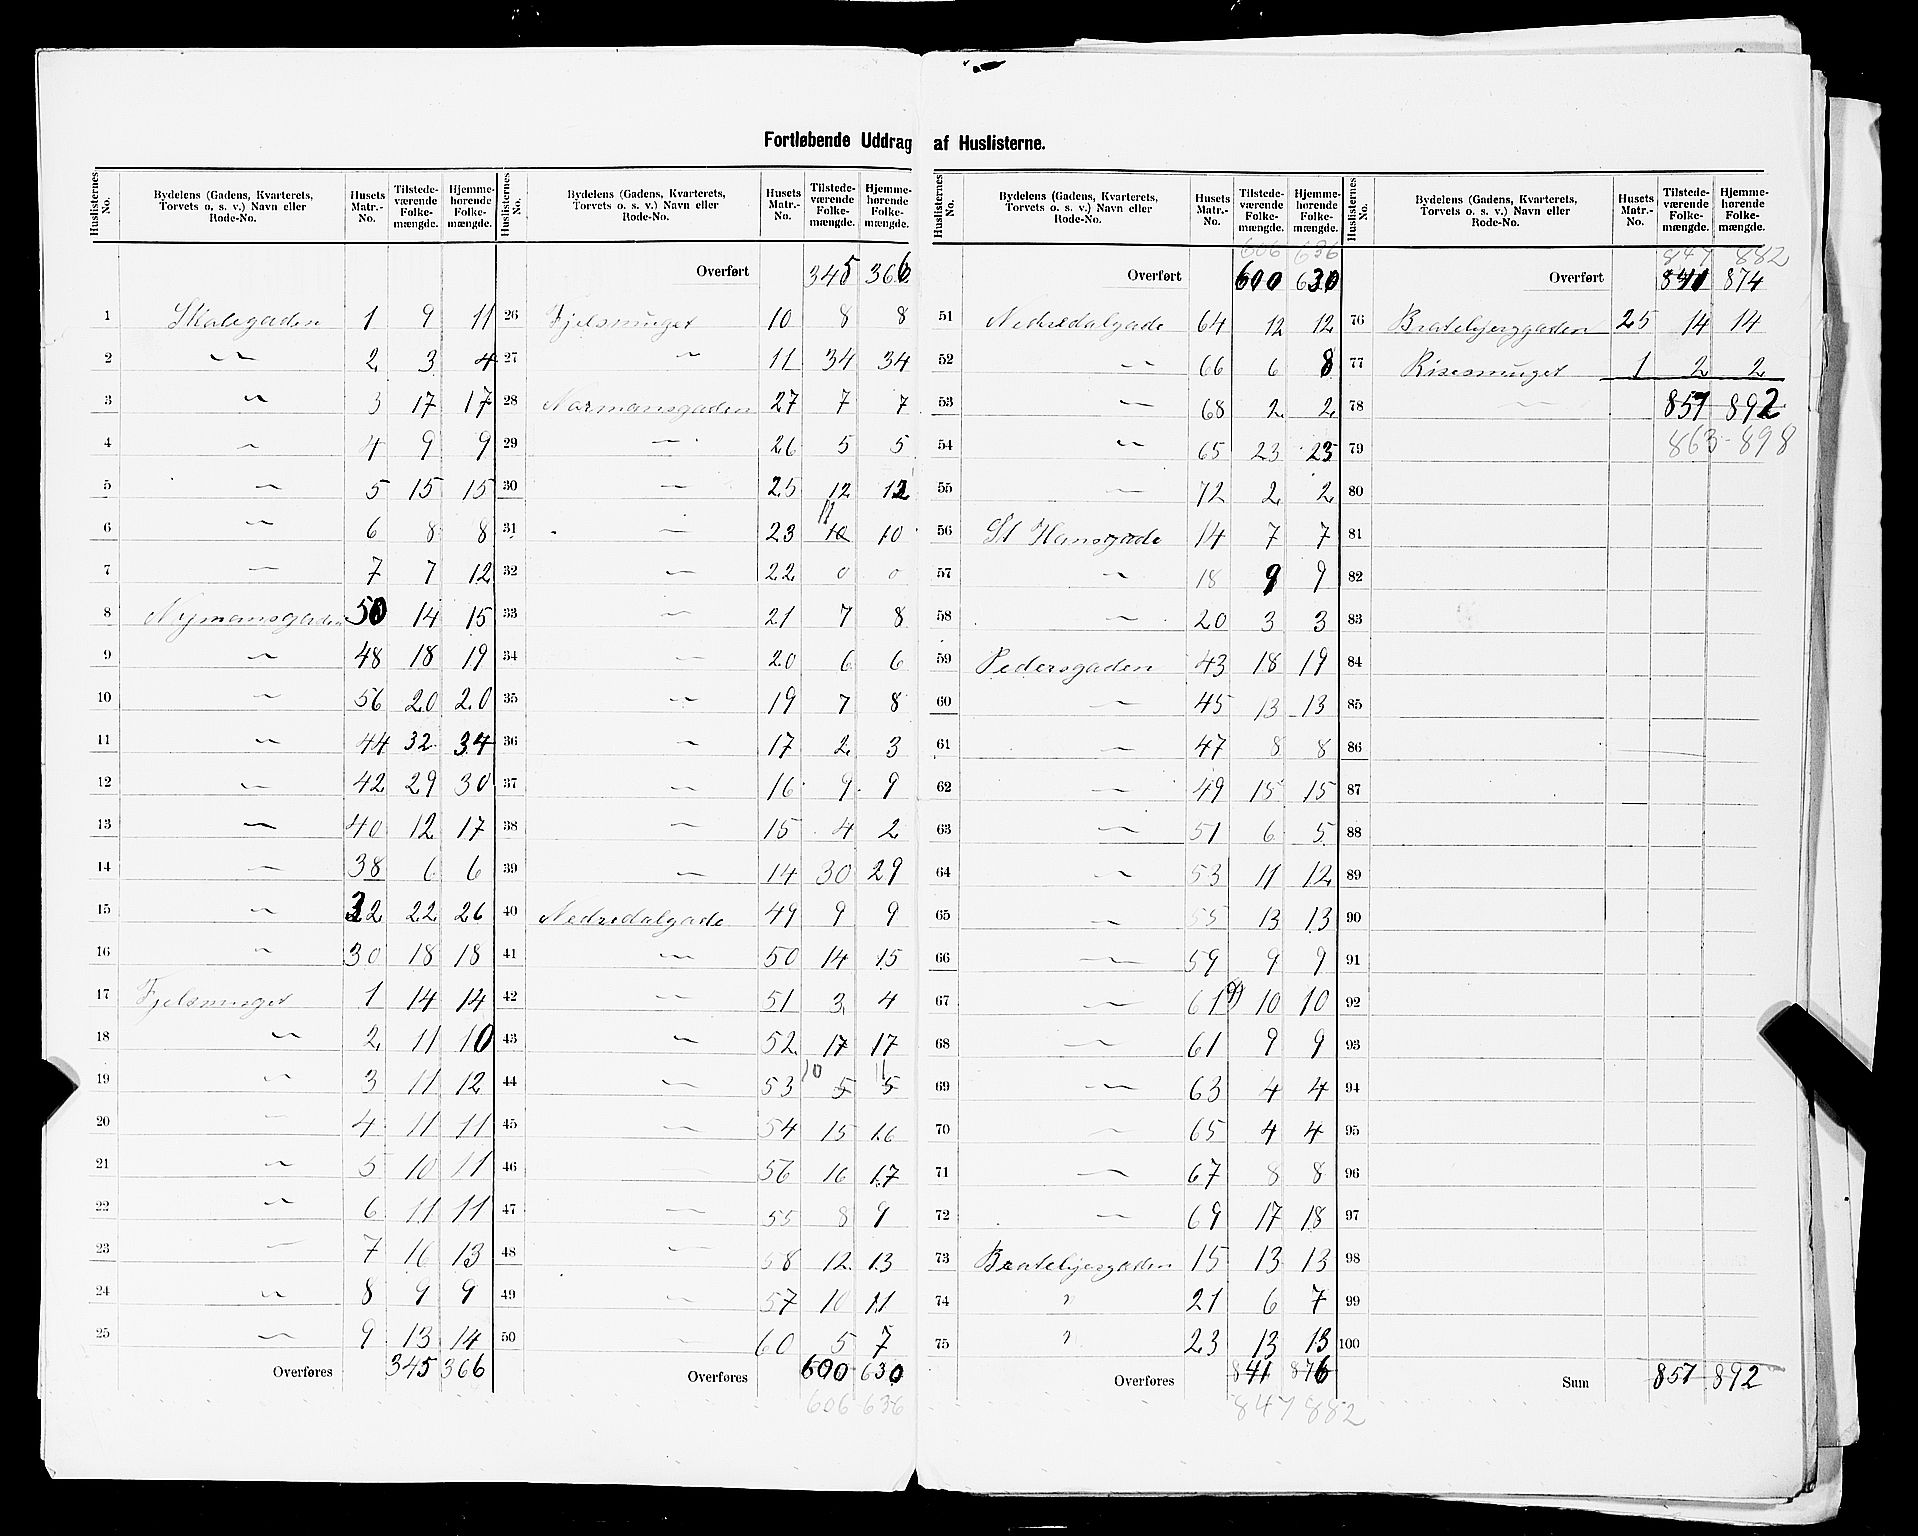 Fortløbende Uddrag af Huslisterne.
Huslisternes No. | Bydelens (Gadens, Kvarterets, Torvets o. s. v.) Navn eller Rode-No. | Husets Matr.-No. | Tilstedeværende Folkemængde. | Hjemmehørende Folkemængde.
1 Skolegaden 1 9 11
2 〃 2 3 4
3 〃 3 17 17
4 〃 4 9 9
5 〃 5 15 15
6 〃 6 8 8
7 〃 7 7 12
8 Nymansgaden 50 14 15
9 〃 48 18 19
10 〃 56 20 20
11 〃 44 32 34
12 〃 42 29 30
13 〃 40 12 17
14 〃 38 6 6
15 〃 32 22 26
16 〃 30 18 18
17 Fjelsmuget 1 14 14
18 〃 2 11 10
19 〃 3 11 12
20 〃 4 11 11
21 〃 5 10 11
22 〃 6 11 11
23 〃 7 16 13
24 〃 8 9 9
25 〃 9 13 14
Overføres 345 366
Huslisternes No. | Bydelens (Gadens, Kvarterets, Torvets o. s. v.) Navn eller Rode-No. | Husets Matr.-No. | Tilstedeværende Folkemængde. | Hjemmehørende Folkemængde.
Overført 345 366
26 Fjelsmuget 10 8 8
27 〃 11 34 34
28 Normansgaden 27 7 7
29 〃 26 5 5
30 〃 25 12 12
31 〃 23 11 10 10
32 〃 22 0 0
33 〃 21 7 8
34 〃 20 6 6
35 〃 19 7 8
36 〃 17 2 3
37 〃 16 9 9
38 〃 15 4 2
39 〃 14 30 29
40 Nedredalgade 49 9 9
41 〃 50 14 15
42 〃 51 3 4
43 〃 52 17 17
44 〃 53 10 5 11 5
45 〃 54 15 16
46 56 16 17
47 〃 55 8 9
48 〃 58 12 13
49 〃 57 10 11
50 〃 60 5 7
Overføres 600 630
606 636
Huslisternes No. | Bydelens (Gadens, Kvarterets, Torvets o. s. v.) Navn eller Rode-No. | Husets Matr.-No. | Tilstedeværende Folkemængde. | Hjemmehørende Folkemængde.
606 636
Overført 600 630
51 Nedredalgade 64 12 12
52 〃 66 6 8
53 〃 68 2 2
54 〃 65 23 23
55 〃 72 2 2
56 St Hansgade 14 7 7
57 〃 18 9 9
58 〃 20 3 3
59 Pedersgaden 43 18 19
60 〃 45 13 13
61 〃 47 8 8
62 〃 49 15 15
63 〃 51 6 5
64 〃 53 11 12
65 〃 55 13 13
66 〃 59 9 9
67 〃 61 10 10
68 〃 61 9 9
69 〃 63 4 4
70 〃 65 4 4
71 〃 67 8 8
72 〃 69 17 18
73 Bratebjergaden 15 13 13
74 〃 21 6 7
75 〃 23 13 13
Overføres 841 876
847 882
Huslisternes No. | Bydelens (Gadens, Kvarterets, Torvets o. s. v.) Navn eller Rode-No. | Husets Matr.-No. | Tilstedeværende Folkemængde. | Hjemmehørende Folkemængde.
847 882
Overført 841 874
76 Bratebjerggaden 25 14 14
77 Risesmuget 1 2 2
78 〃 857 892
79 863-898
80
81
82
83
84
85
86
87
88
89
90
91
92
93
94
95
96
97
98
99
100
Sum 857 892